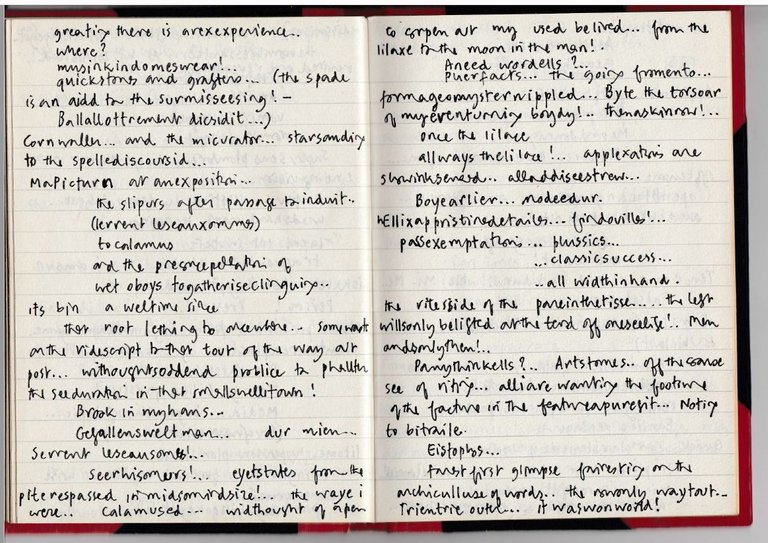 greatix there is arexexperience..
where?
musinkindomeswear!...
quickstones and grafters... (the spade
is an aidd to the surmisseesing! –
Ballallottrement dicsidit...)
Cornwaller... and the micurator... starsandix
to the spellediscoursid.
MaPicturn at anexposition...
the slipurs after passage to induit..
(lerrent leseauxomms)
to calamus
and the
wet oboys togatheriseclinguix...
its bin a weltime since
that root lething to
on the ridescript to that tout of the way art
post... withoughtsoddend problice to phallth
the seeduration in that smallswellitown!
Brook in myhams...
Gefallensweltman... dur mien...
Serrent leseausoms!...
seerhisomers!... eyetstates from the
piterespassed in midsomirdsize!.. the waye i
were... calamused... widthought of apen
to orpen art my used be lived... from the
lilaxe to the moon in the man!..
Aneed wordells?...
puerfacts... the goirx fromento...
formageomysternippled... Byte the torsoar
of myeventurnix bogdy!.. thenaskinrow!..
once the lilace
allways thelilace!... applexations are
shrwinksenerd... alladdiseestrew...
Boyearlier... modeedur.
hEllixappristinedetails... findouilles!...
passexemptations... plussics...
...classicsuccess...
...all widthinhand.
the riteside of the pareinthetisse... the left
willsonly belifted at the tend off oneseelise!.. Men
andsonlythen!..
Pamythinkells?.. Artstomes.. off the same
see of nitrix... alliare wantix the footure
of the facture in the featureapurefit... Notix
to bitraile.
Eistophos...
farst first glimpse fairestix on the
archiculluse of words... the nownly waytout...
Trientrie outer... it waswonworld!